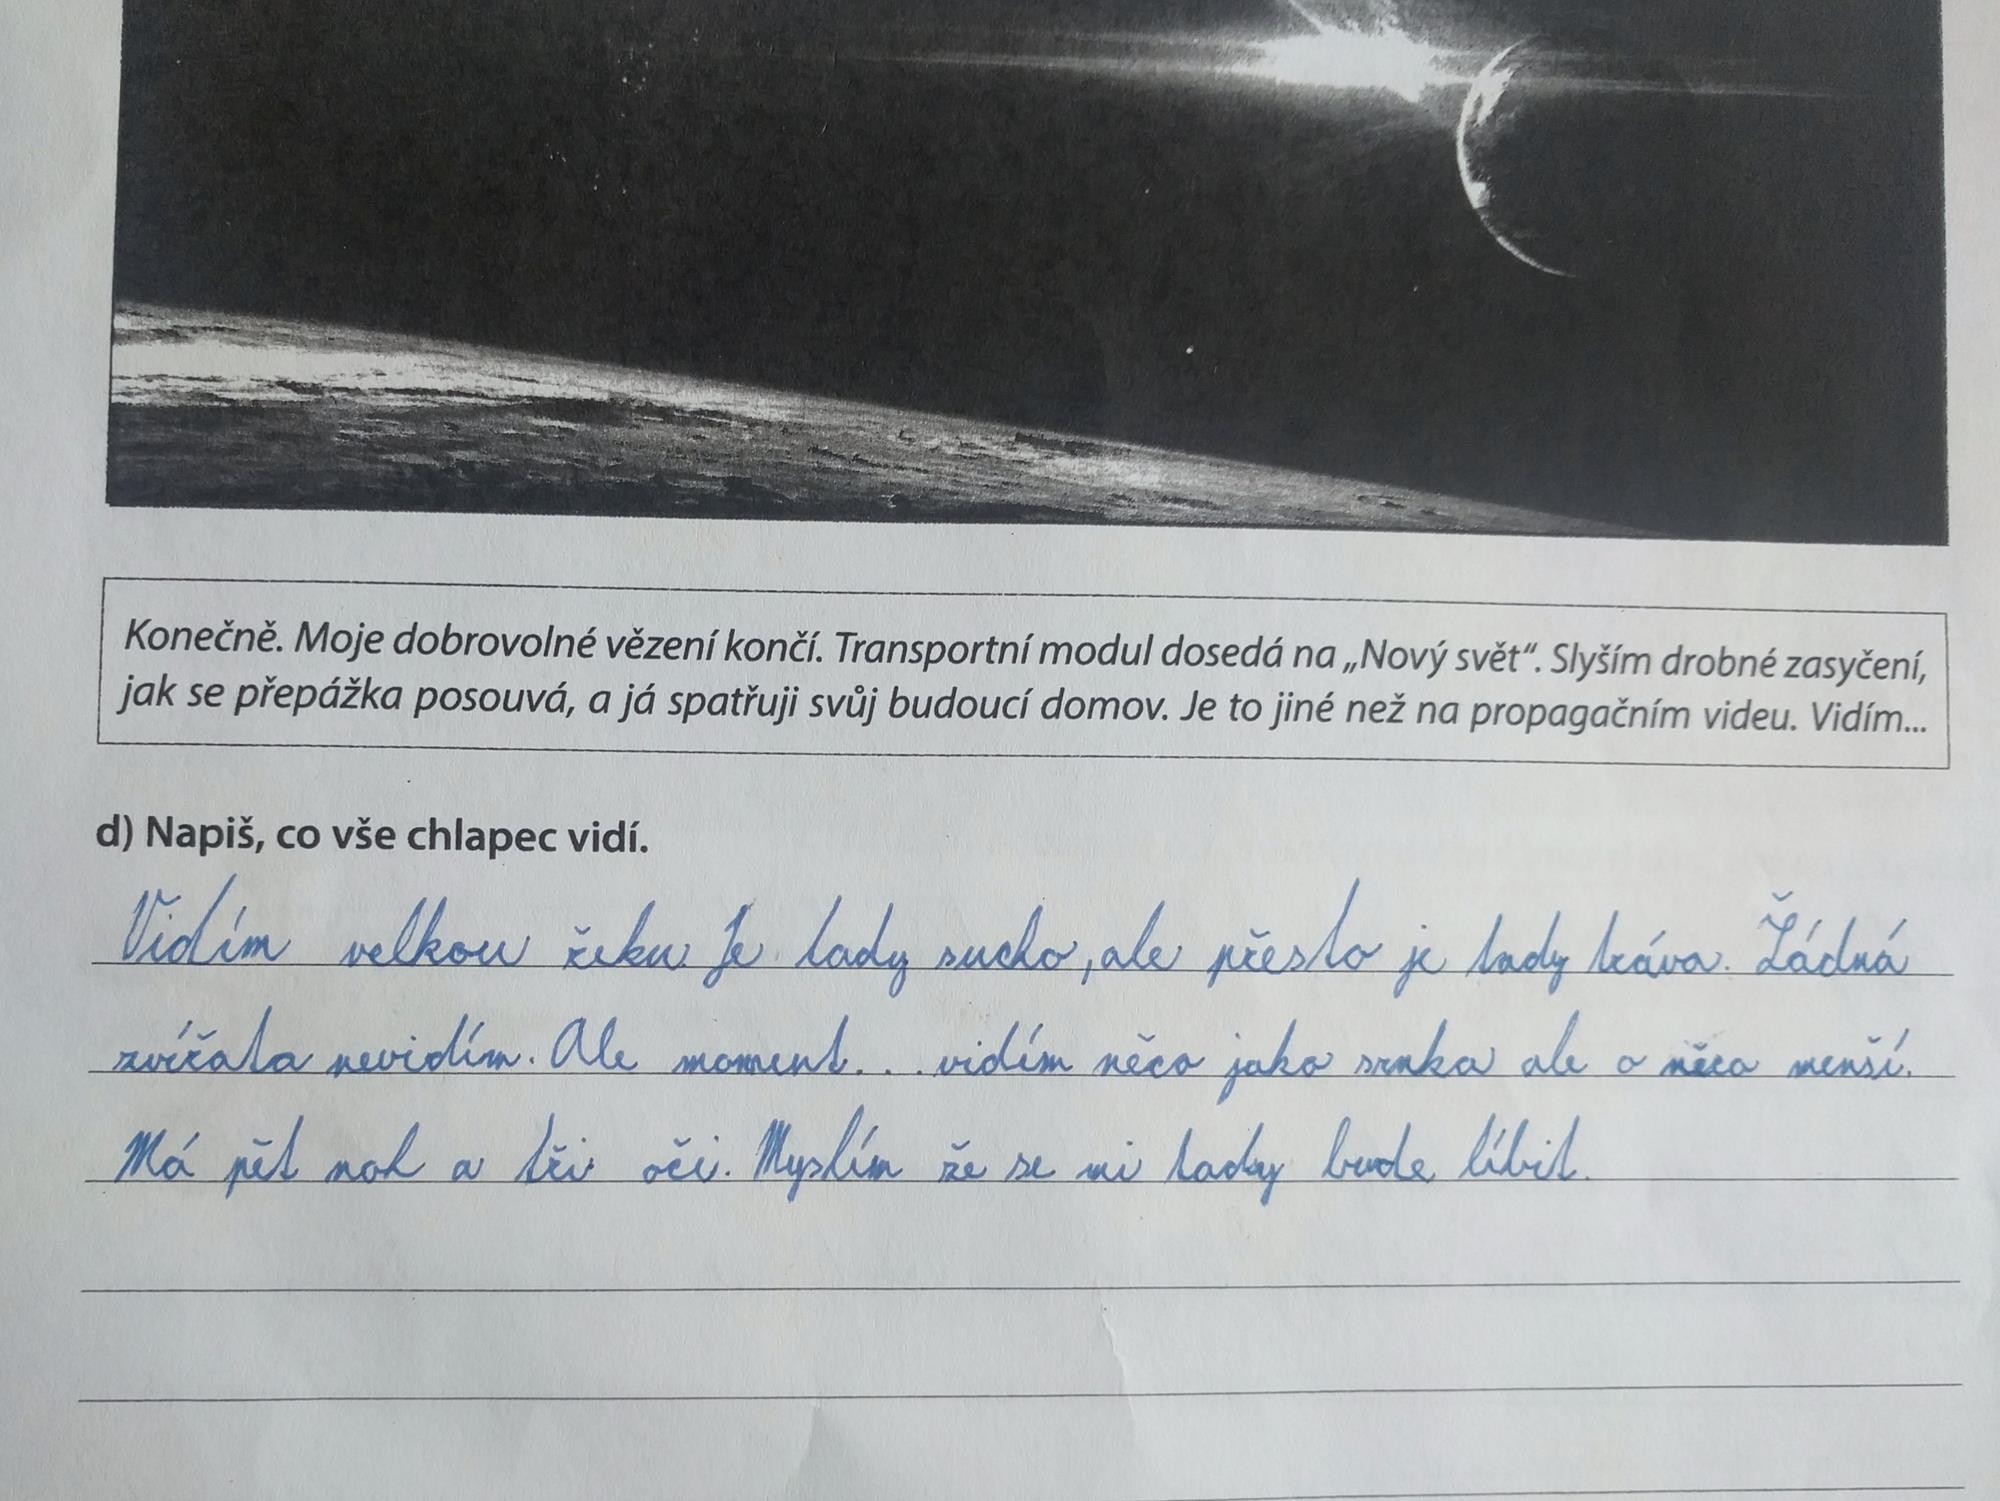 Konečně. Moje dobrovolné vězení končí. Transportní modul dosedá na „Nový svět“. Slyším drobné zasyčení,
jak se přepážka posouvá, a já spatřuji svůj budoucí domov. Je to jiné než na propagačním videu. Vidím...
d) Napiš, co vše chlapec vidí.
Vidím velkou řeku. Je tady sucho, ale přesto je tady tráva. Žádná
zvířata nevidím. Ale moment... vidím něco jako srnka ale o něco menší.
Má pět noh a tři oči. Myslím že se mi tady bude líbit.